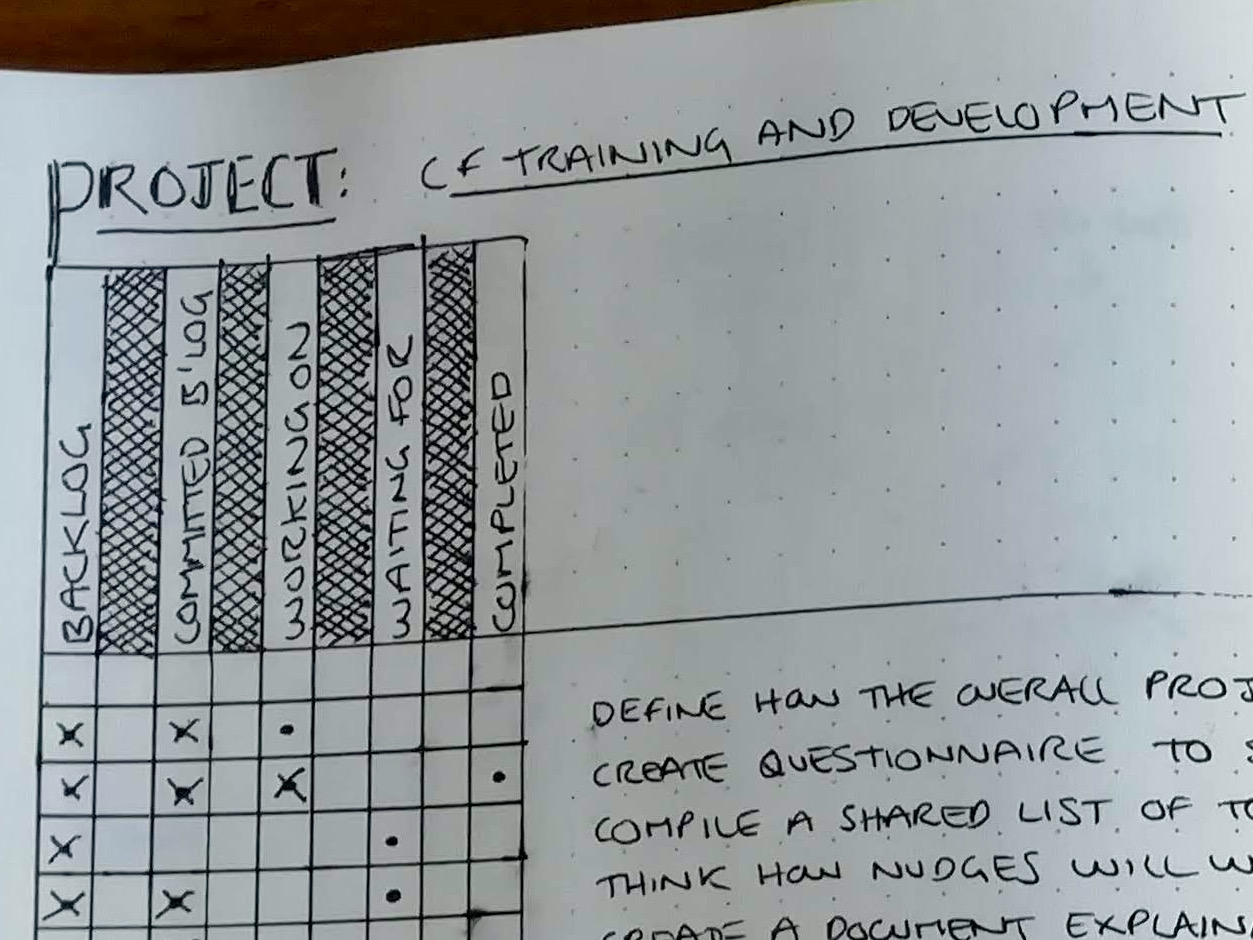 PROJECT: CF TRAINING AND DEVELOPMENT
BACKLOG
COMMITTED B'LOG
WORKING ON
WAITING FOR
COMPLETED
DEFINE HOW THE OVERALL PROJ
CREATE QUESTIONNAIRE TO
COMPILE A SHARED LIST OF TO
THINK HOW NUDGES WILL W
CREATE A DOCUMENT EXPLAIN